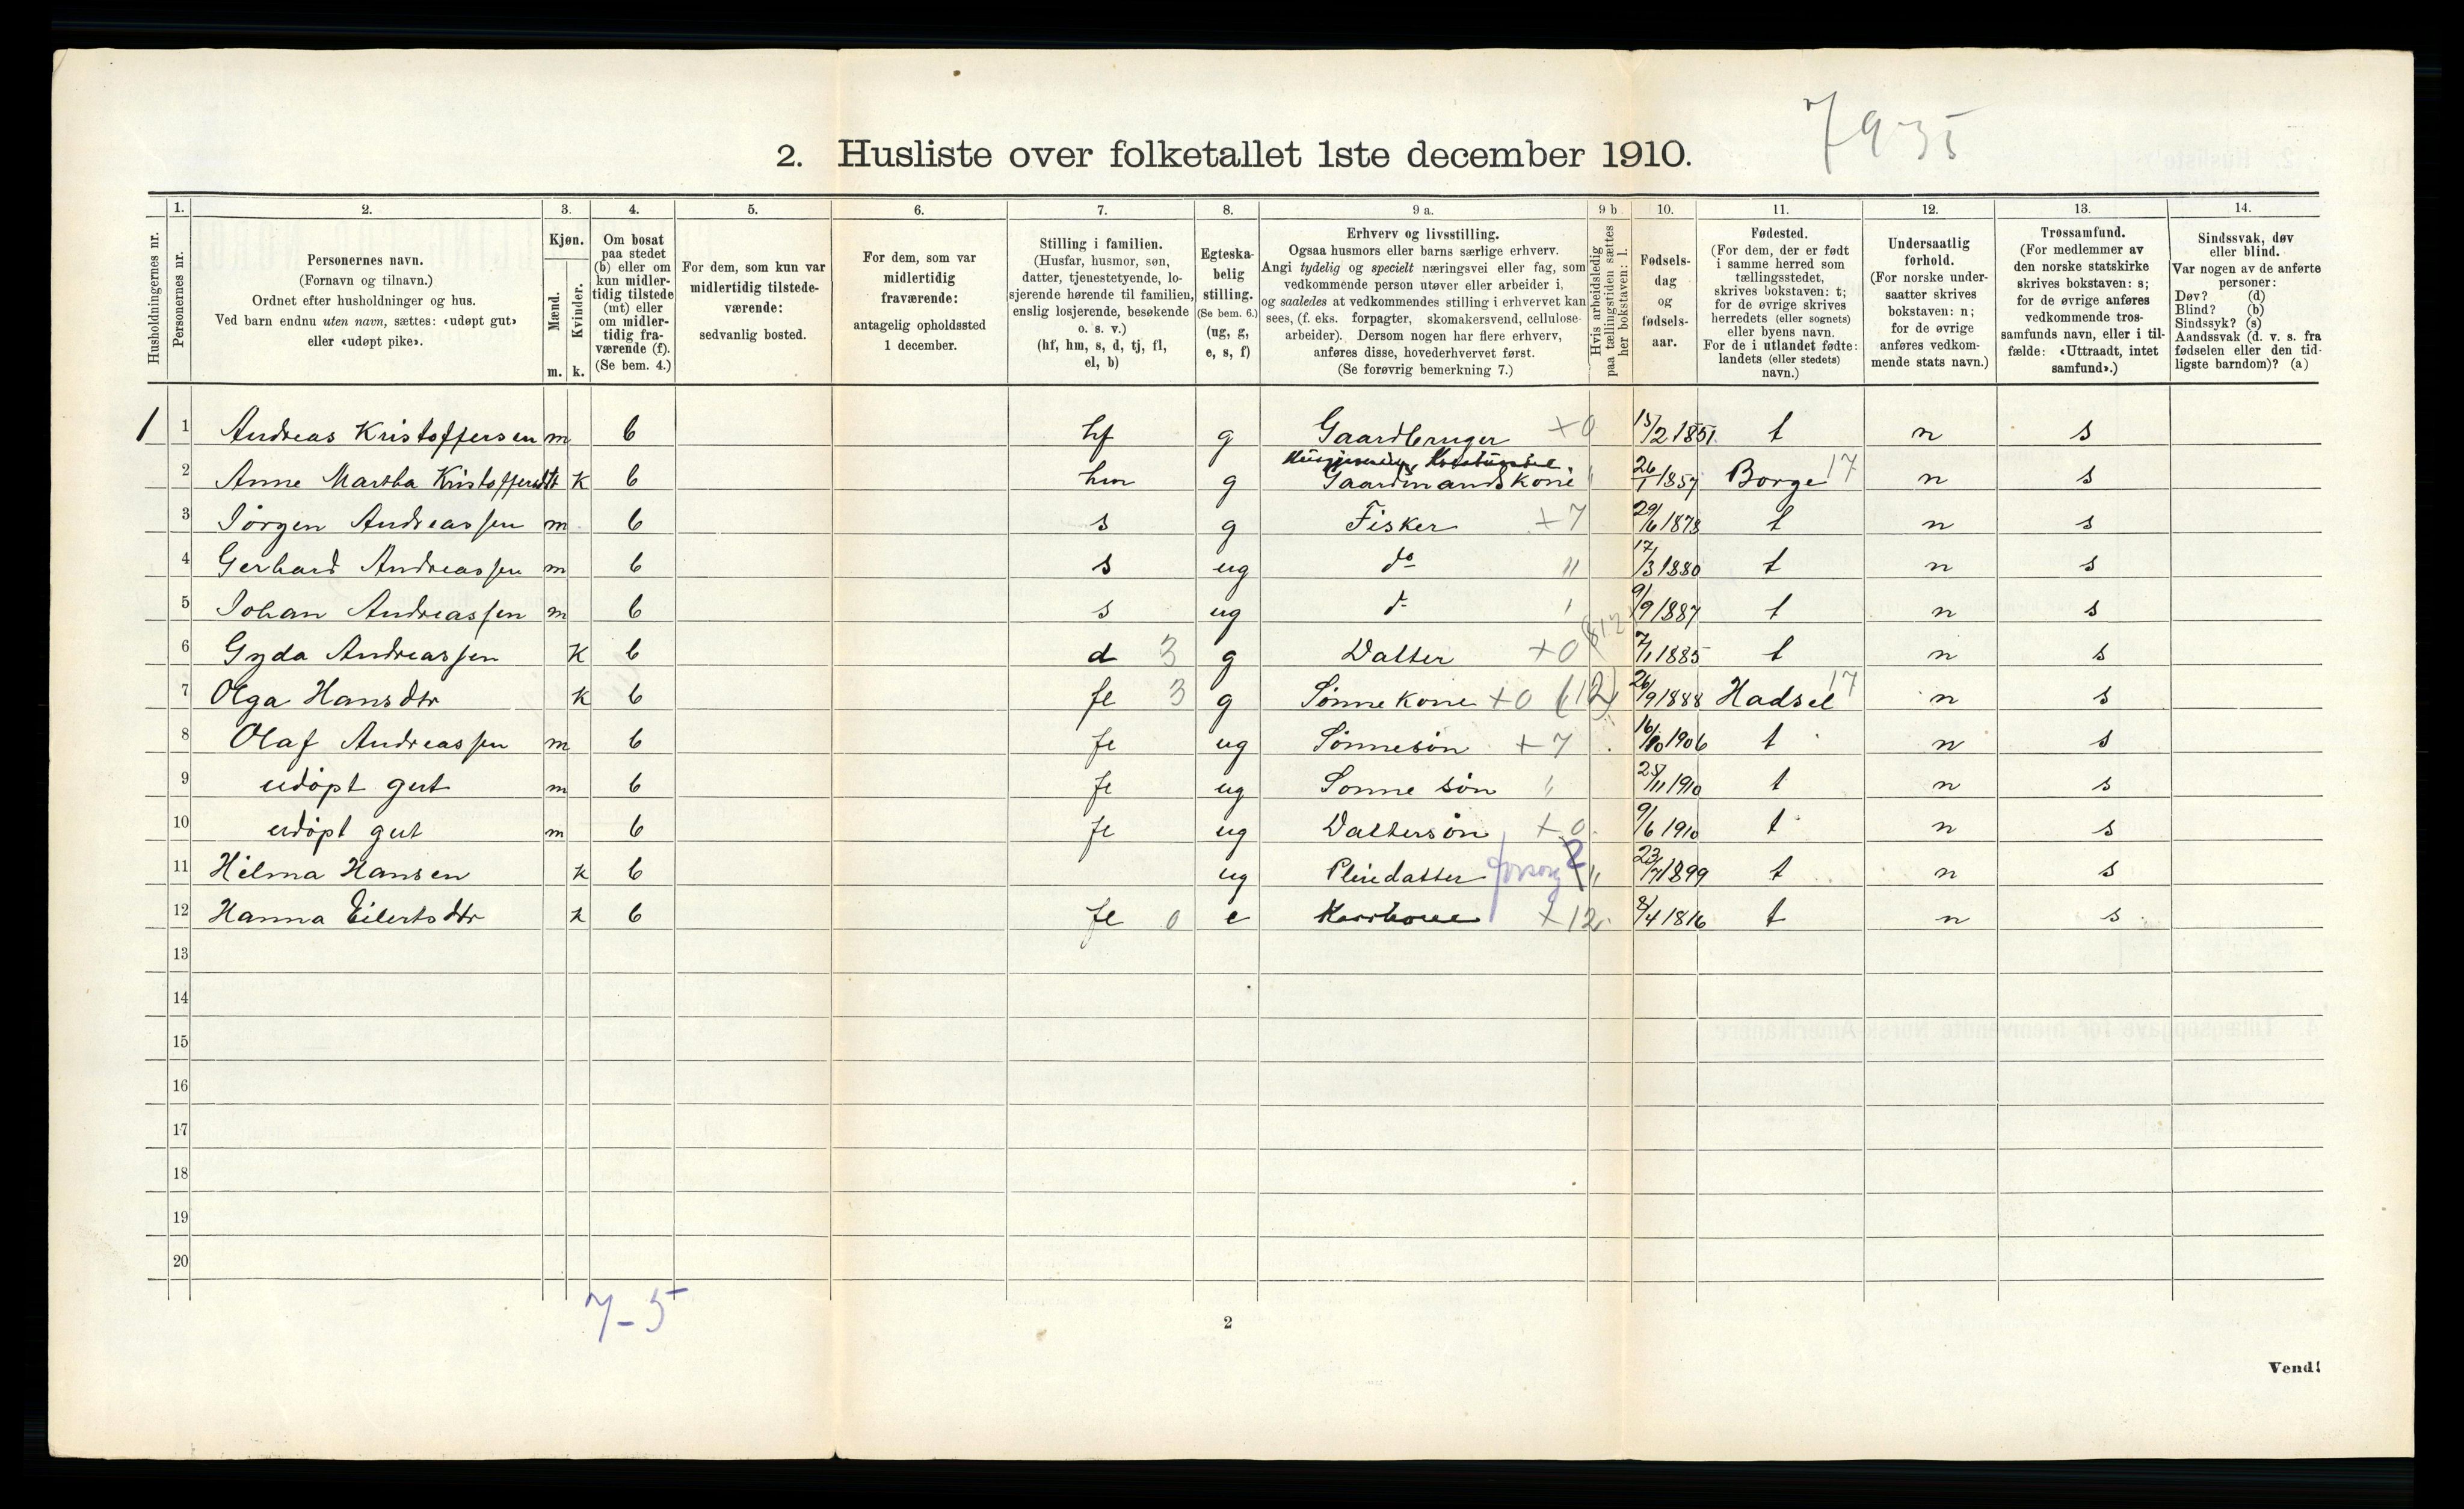 2. Husliste over folketallet 1ste december 1910.
7935
Husholdningernes nr.
1.
Personernes nr.
2.
Personernes navn.
(Fornavn og tilnavn.)
Ordnet efter husholdninger og hus.
Ved barn endnu uten navn, sættes: «udøpt gut»
eller «udøpt pike».
3.
Kjøn.
Mænd.
Kvinder.
m. k.
4.
Om bosat
paa stedet
(b) eller om
kun midler-
tidig tilstede
(mt) eller
om midler-
tidig fra-
værende (f).
(Se bem. 4.)
5.
For dem, som kun var
midlertidig tilstede-
værende:
sedvanlig bosted.
6.
For dem, som var
midlertidig
fraværende:
antagelig opholdssted
1 december.
7.
Stilling i familien.
(Husfar, husmor, søn,
datter, tjenestetyende, lo-
sjerende hørende til familien,
enslig losjerende, besøkende
o. s. v.)
(hf, hm, s, d, tj, fl,
el, b)
8.
Egteska-
belig
stilling.
(Se bem. 6.)
(ug, g,
e, s, f)
9 a.
Erhverv og livsstilling.
Ogsaa husmors eller barns særlige erhverv.
Angi tydelig og specielt næringsvei eller fag, som
vedkommende person utøver eller arbeider i,
og saaledes at vedkommendes stilling i erhvervet kan
sees, (f. eks. forpagter, skomakersvend, cellulose-
arbeider). Dersom nogen har flere erhverv,
anføres disse, hovederhvervet først.
(Se forøvrig bemerkning 7.)
9 b.
Hvis arbeidsledig
paa tællingstiden sættes
her bokstaven: l.
10.
Fødsels-
dag
og
fødsels-
aar.
11.
Fødested.
(For dem, der er født
i samme herred som
tællingsstedet,
skrives bokstaven: t;
for de øvrige skrives
herredets (eller sognets)
eller byens navn.
For de i utlandet fødte:
landets (eller stedets)
navn.)
12.
Undersaatlig
forhold.
(For norske under-
saatter skrives
bokstaven: n;
for de øvrige
anføres vedkom-
mende stats navn.)
13.
Trossamfund.
(For medlemmer av
den norske statskirke
skrives bokstaven: s;
for de øvrige anføres
vedkommende tros-
samfunds navn, eller i til-
fælde: «Uttraadt, intet
samfund».)
14.
Sindssvak, døv
eller blind.
Var nogen av de anførte
personer:
Døv? (d)
Blind? (b)
Sindssyk? (s)
Aandssvak (d. v. s. fra
fødselen eller den tid-
ligste barndom)? (a)
1 1 Andreas Kristoffersen m b hf g Gaardbruger +0 15/2 1851 t n s
2 Anne Martha Kristoffersdtr k b hm g Gaardmands Kone " 26/1 1857 Borge 17 n s
3 Jörgen Andreassen m b s g Fisker +7 29/6 1878 t n s
4 Gerhard Andreassen m b s ug do " 17/3 1880 t n s
5 Johan Andreassen m b s ug d- 9/9 1887 t n s
6 Gyda Andreassen k b d 3 g Datter +0 (812) 7/1 1885 t n s
7 Olga Hansdtr k b fl 3 g Sønnekone +0 (12) 26/9 1888 Hadsel 17 n s
8 Olaf Andreassen m b fl ug Sønnesøn +7 16/10 1906 t n s
9 udøpt gut m b fl ug Sønnesøn " 28/11 1910 t n s
10 udøpt gut m b fl ug Dattersøn +0 9/6 1910 t n s
11 Hilma Hansen k b ug Pleiedatter forsorg 2 " 23/7 1899 t n s
12 Hanna Eilertsdtr k b fl 0 e Kaarkone +12 8/4 1816 t n s
13
14
15
16
17
18
19
20
7-5
2
Vend!